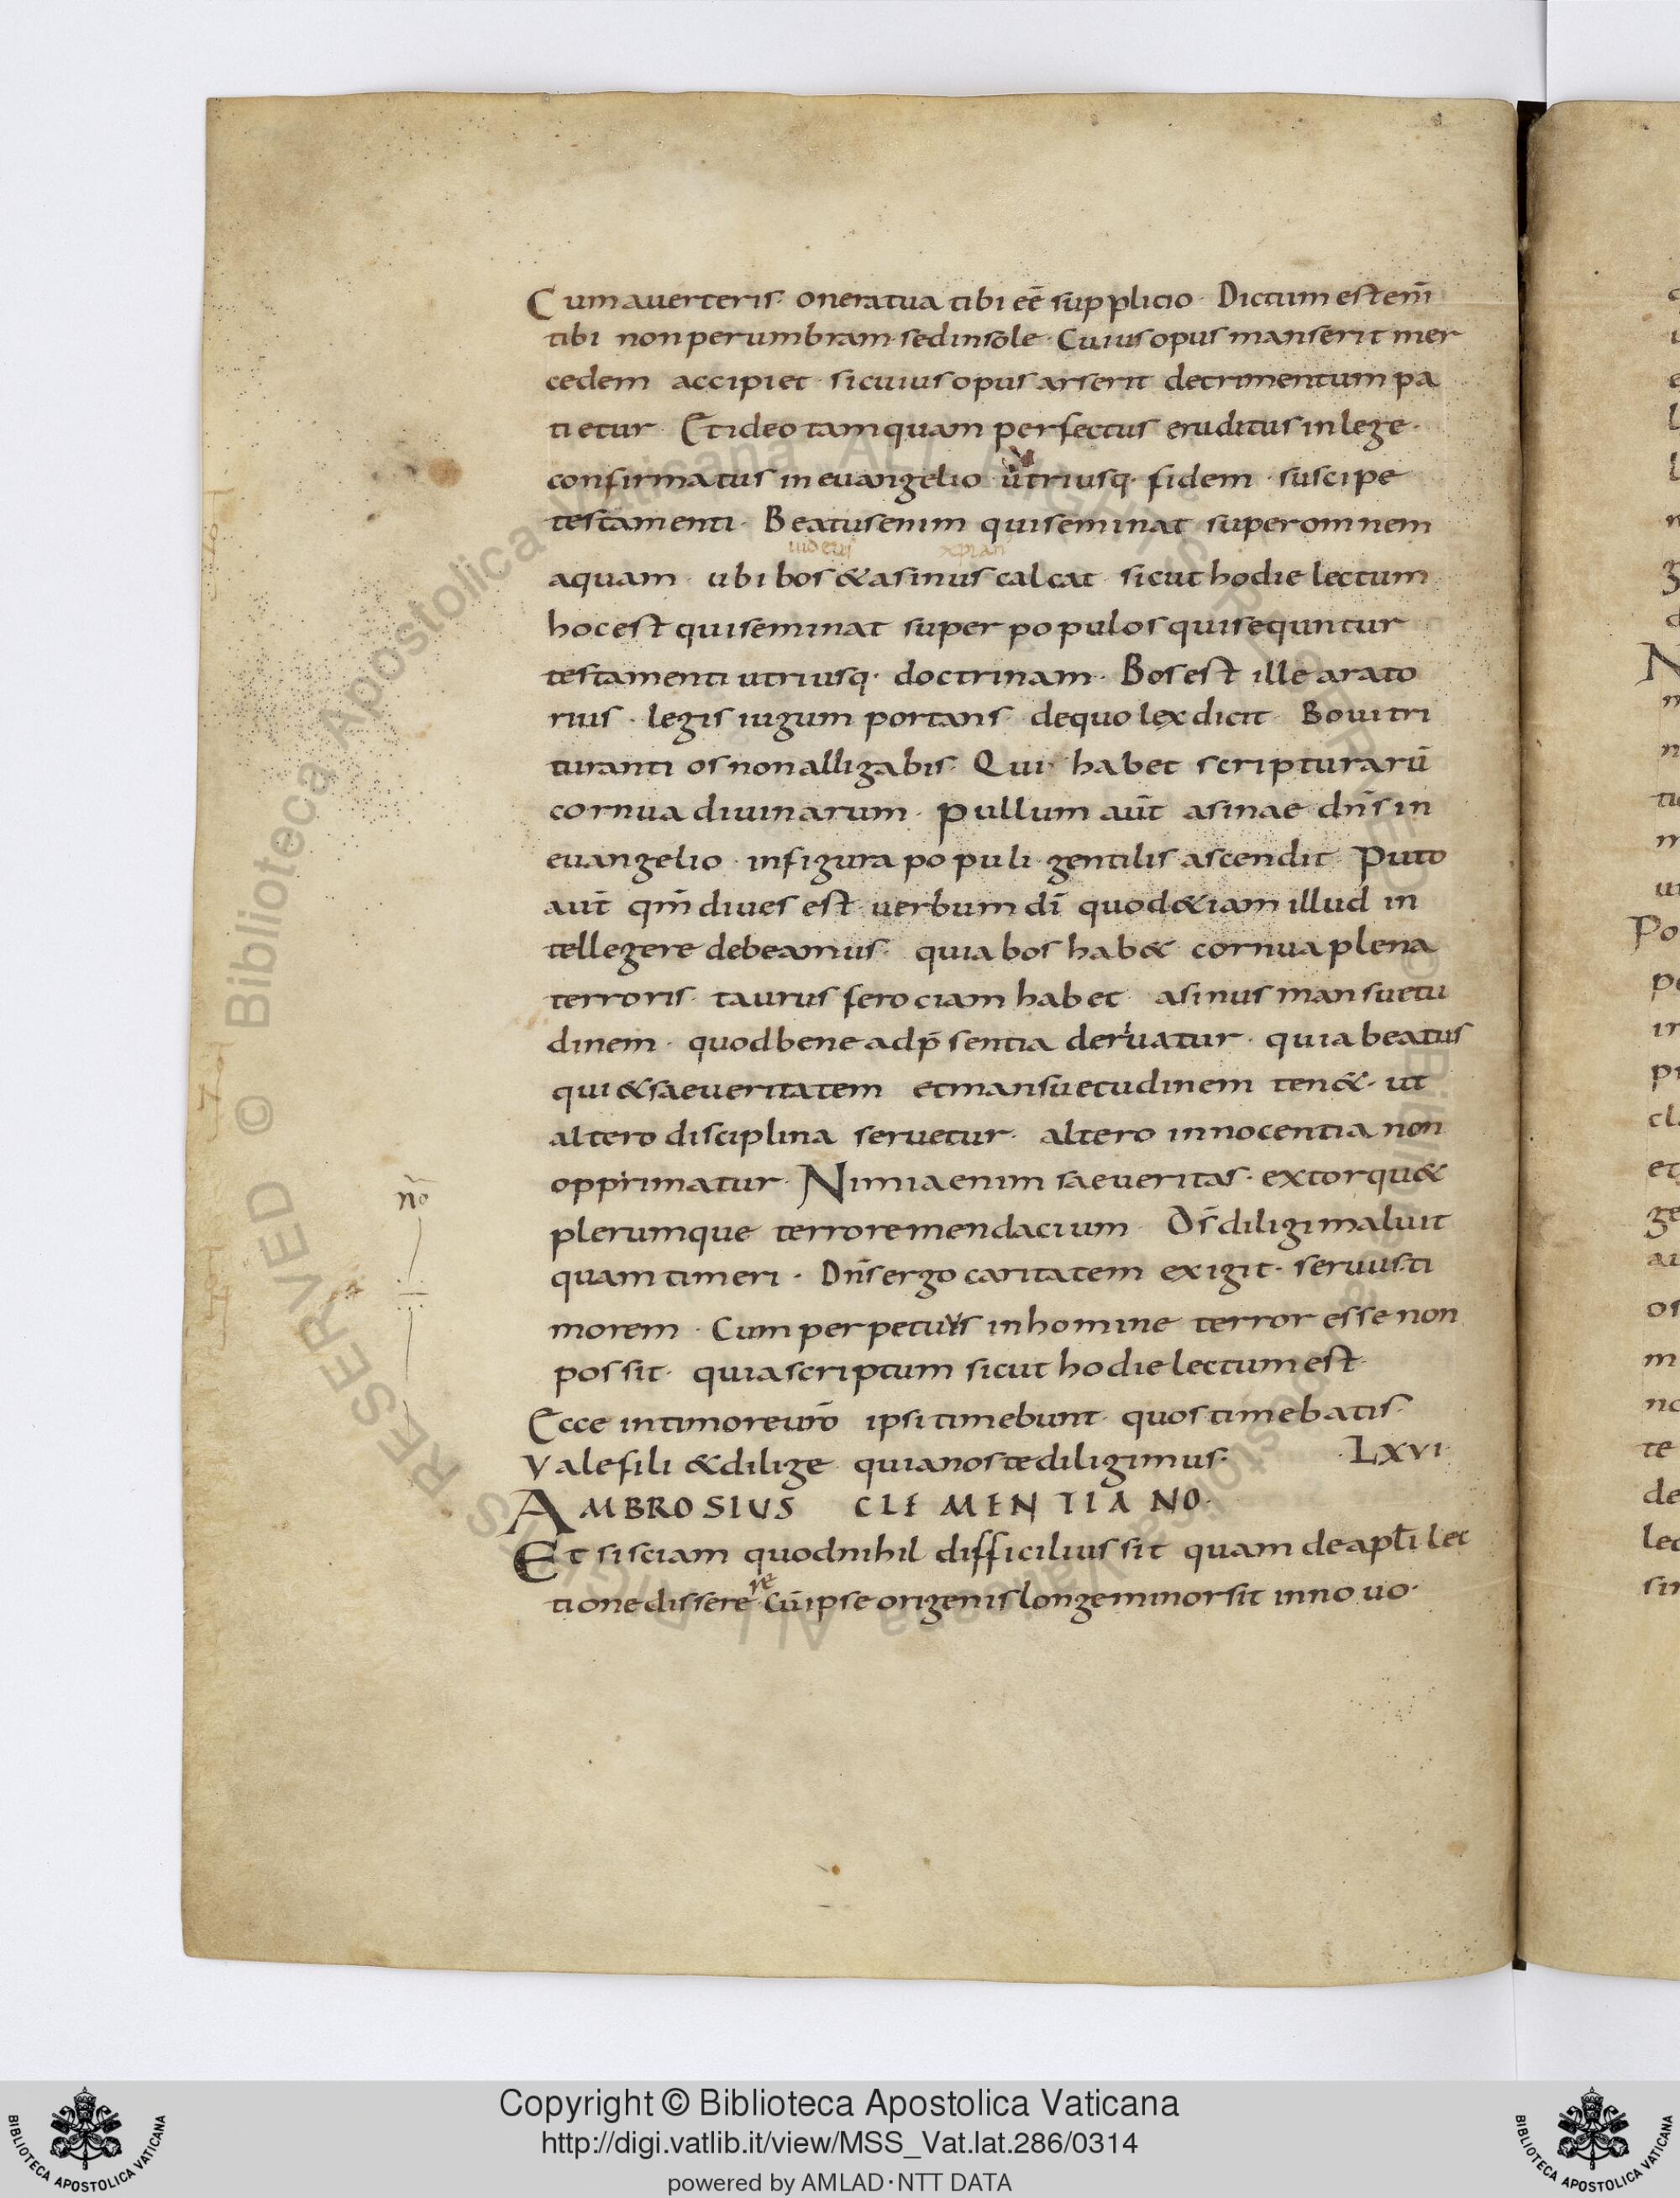 Cum averteris· onera tua tibi eē supplicio· Dictum est em̄
tibi non per umbram· sed in sole· Cuius opus manserit mer
cedem accipiet· si cuius opus arserit detrimentum pa
tietur· Et ideo tamquam perfectus eruditus in lege·
confirmatus in euangelio· utriusq· fidem· suscipe
testamenti· Beatus enim qui seminat super omnem
iudeus xpian
aquam· ubi bos & asinus calcat· sicut hodie lectum
hoc est qui seminat super populos qui sequntur
testamenti utriusq· doctrinam· Bos est ille arato
rius· legis iugum portans· de quo lex dicit· Boui tri
turanti os non alligabis· Qui habet scripturarū
cornua diuinarum· Pullum aut̄ asinae dn̄s in
euangelio· in figura populi gentilis ascendit· Puto
aut̄ qm̄ diues est uerbum dī quod &iam illud in
tellegere debeamus· quia bos hab& cornua plena
terroris· taurus ferociam habet· asinus mansuetu
dinem· quod bene ad p̄sentia deriuatur· quia beatus
qui & saeueritatem et mansuetudinem ten&· ut
altero disciplina seruetur· altero innocentia non
opprimatur· Nimia enim saeueritas· extorqu&
n̄o
plerumque terrore mendacium· Ds̄ diligi maluit
quam timeri· Dn̄s ergo caritatem exigit· seruus ti
morem· Cum perpetuus in homine terror esse non
possit· quia scriptum sicut hodie lectum est·
Ecce in timore ur̄o ipsi timebunt· quos timebatis·
Vale fili & dilige quia nos te diligimus· ·LXVI·
AMBROSIUS CLEMENTIANO·
Et si sciam quod nihil difficilius sit quam de apl̄i lec
re
tione dissere· Cū ipse origenis longe minor sit in nouo·
Copyright © Biblioteca Apostolica Vaticana
http://digi.vatlib.it/view/MSS_Vat.lat.286/0314
powered by AMLAD·NTT DATA
BIBLIOTECA APOSTOLICA VATICANA
BIBLIOTECA APOSTOLICA VATICANA